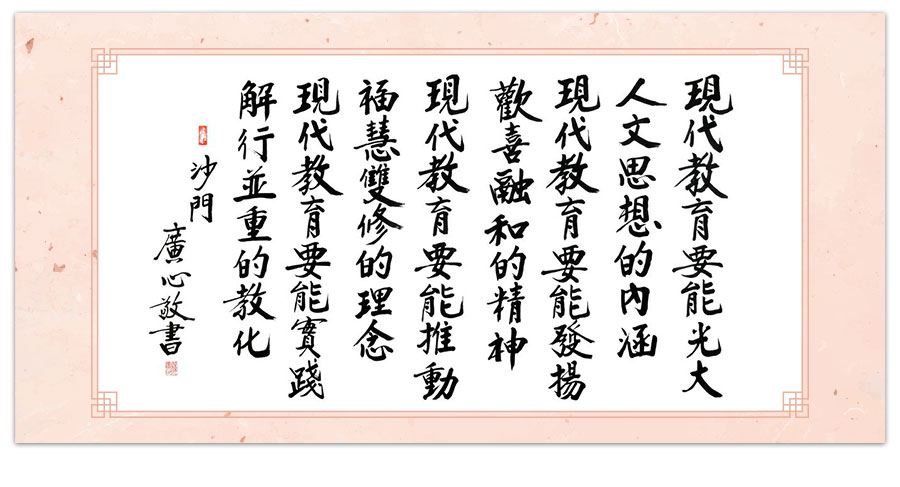 現代教育要能光大
人文思想的內涵
現代教育要能發揚
歡喜融和的精神
現代教育要能推動
福慧雙修的理念
現代教育要能實踐
解行並重的教化
沙門
廣心敬書